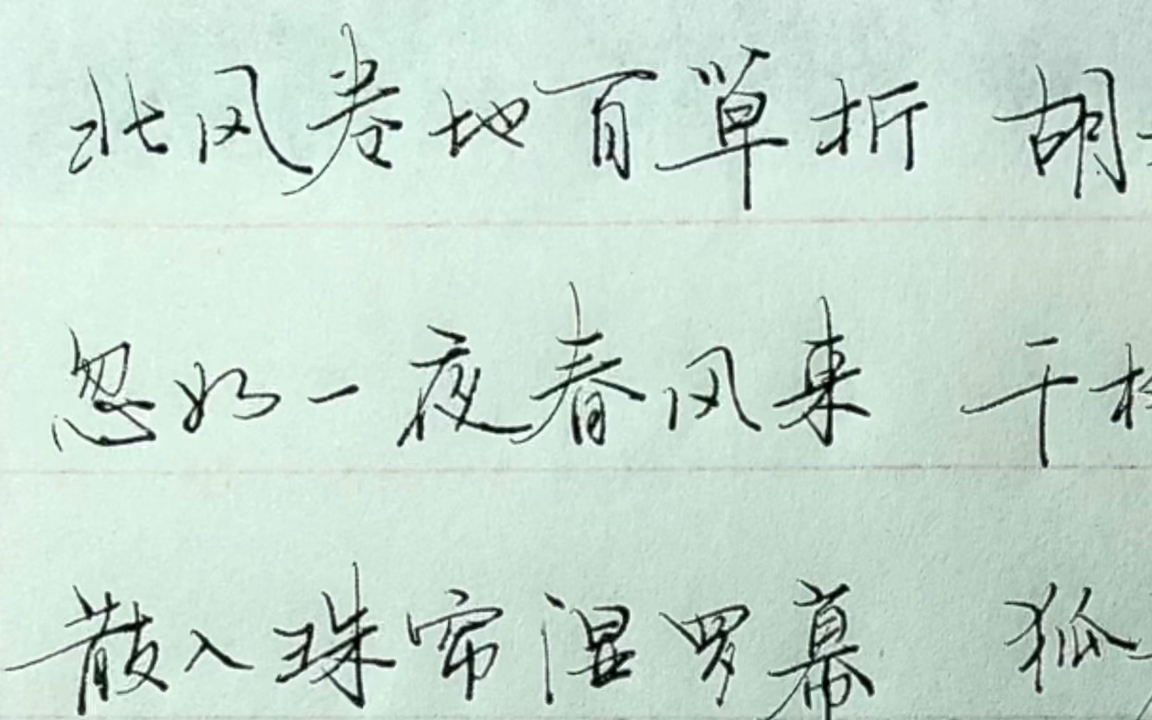 北风卷地百草折 胡
忽如一夜春风来 千
散入珠帘湿罗幕 狐